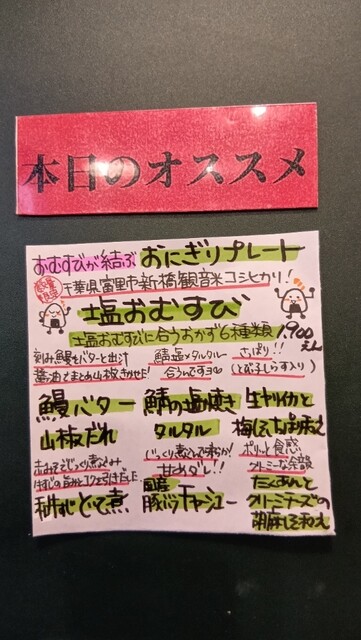 本日のオススメ
おむすびが結ぶ おにぎりプレート
千葉県富里市新橋観音米コシヒカリ!
塩おむすび
塩おむすびに合うおかず6種類!900えん
刻み鰻をバターと出汁
醤油でまとめ山椒きかせた!
鰻バター
山椒だれ
鯖塩×タルタル
合うんですョね
鯖の塩焼き
タルタル
さっぱり!!
(とび子しらす入り)
生ヤリイカと
梅しそ
赤みそでじっくり煮込み
牛すじどて煮
じっくり煮込んで
甘めダレ!!
国産
豚バラチャシュー
ポリッと食感
クリーミーな
たくあんと
クリームチーズの
胡麻しそ和え